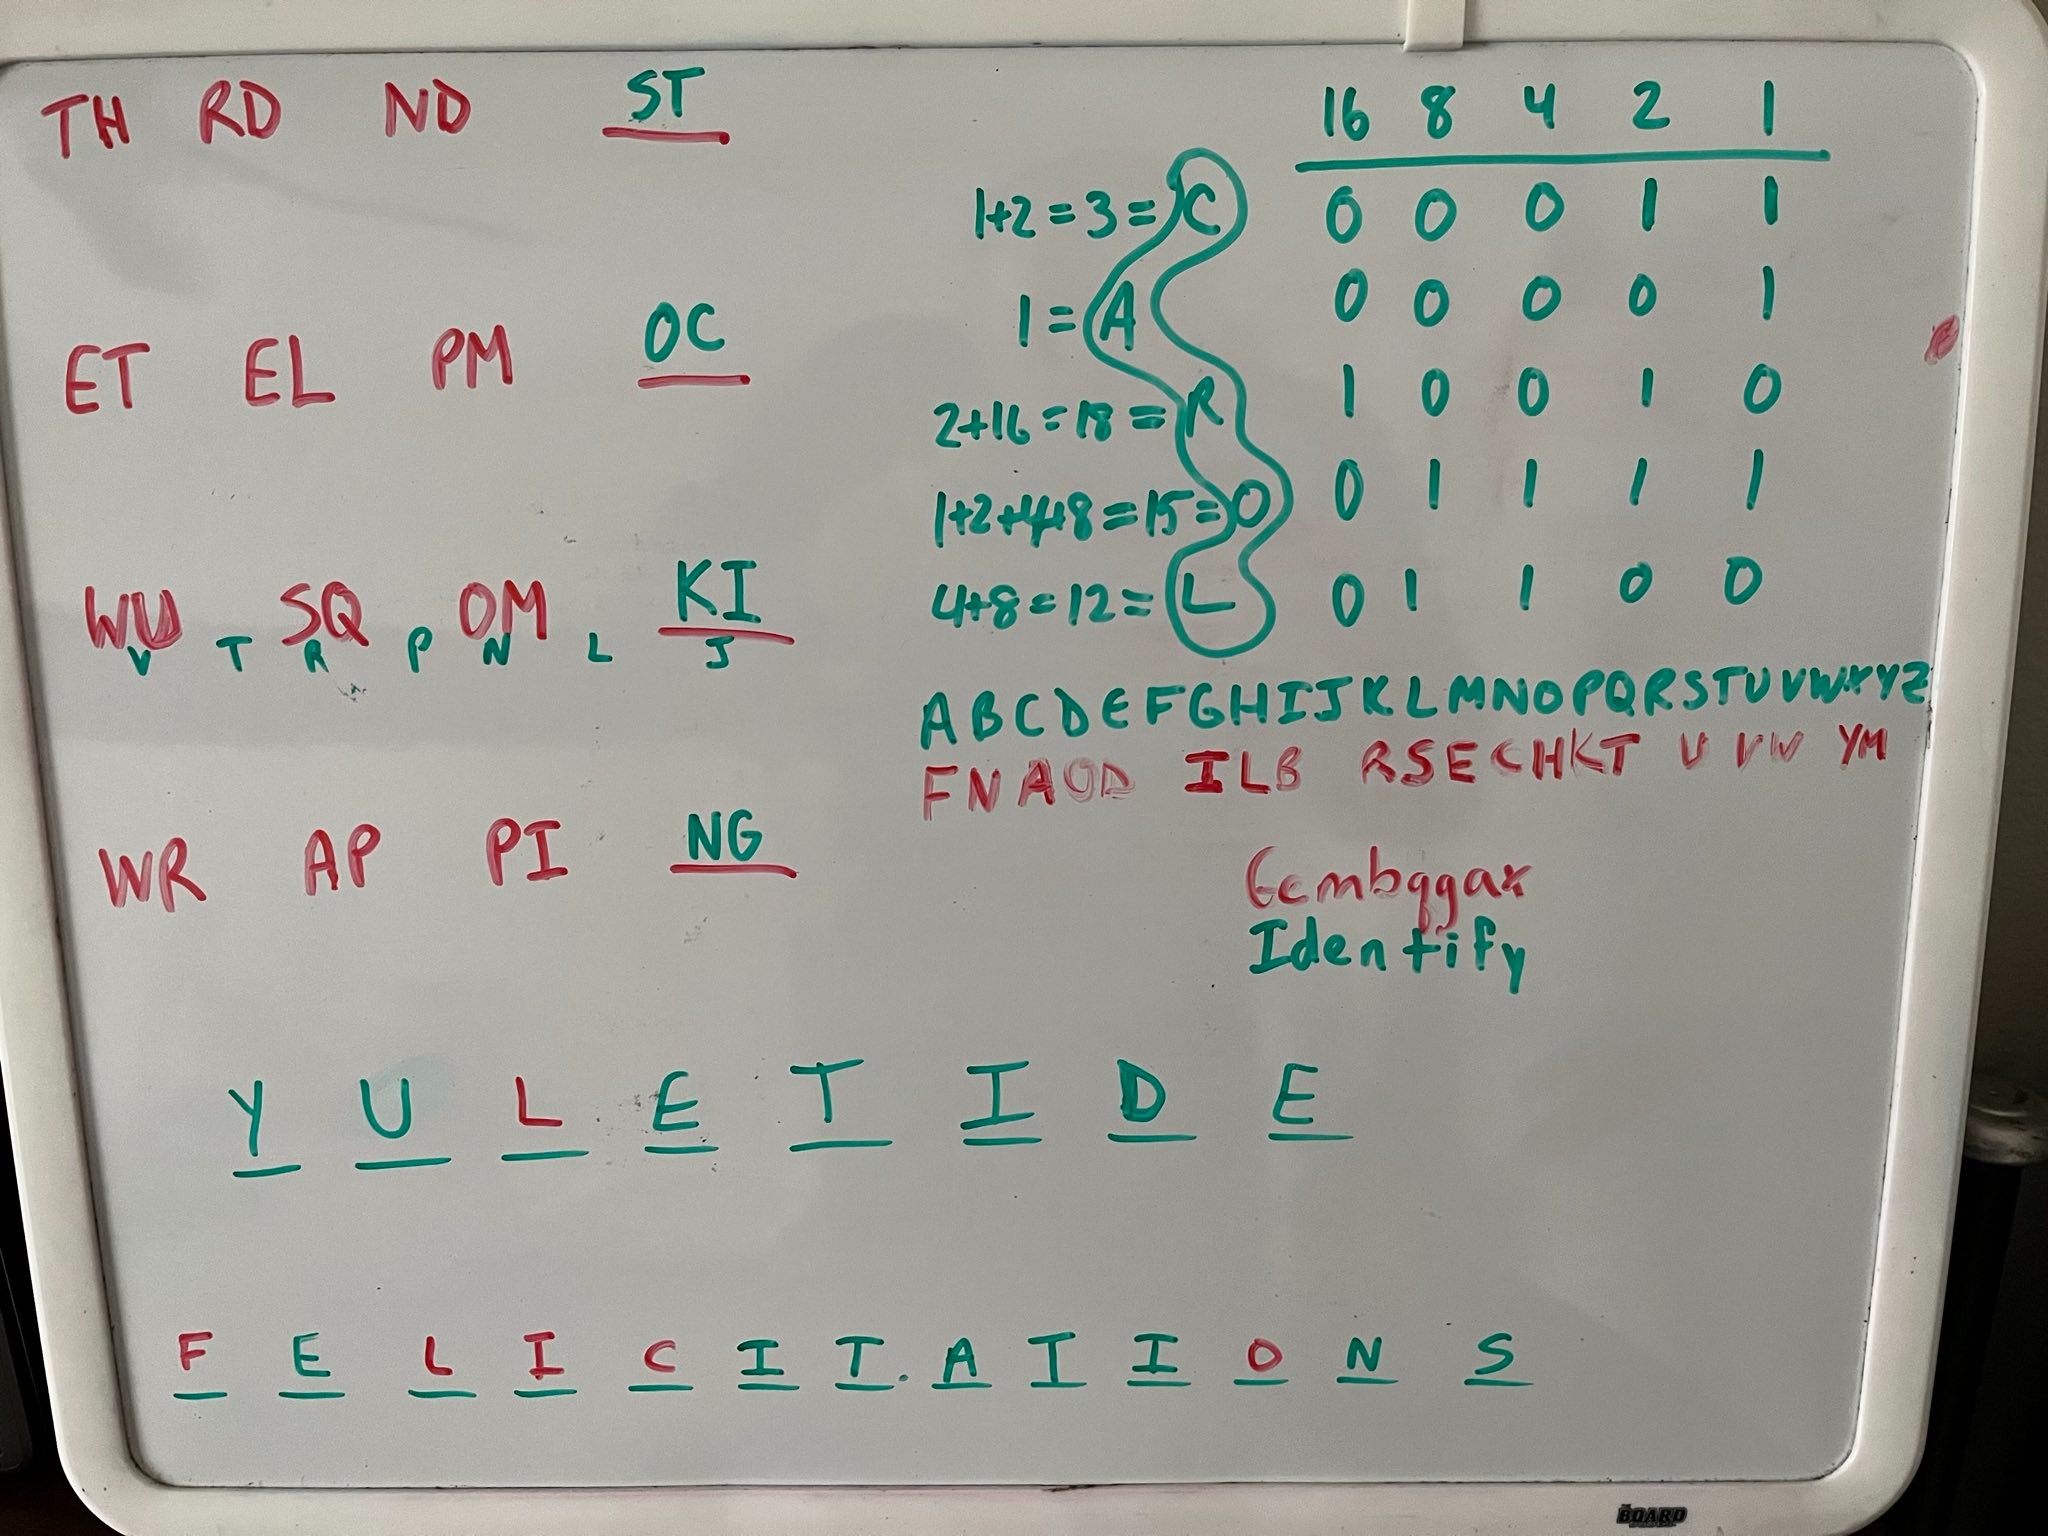 TH RD ND ST
ET EL PM OC
WU SQ OM KI
V T R P N L J
WR AP PI NG
16 8 4 2 1
1+2=3=C 0 0 0 1 1
1=A 0 0 0 0 1
2+16=18=R 1 0 0 1 0
1+2+4+8=15=O 0 1 1 1 1
4+8=12=L 0 1 1 0 0
ABCDEFGHIJKLMNOPQRSTUVWXYZ
FNAOD ILB RSECHKT U VW YM
Gcmbqgax
Identify
Y U L E T I D E
F E L I C I T A T I O N S
BOARD